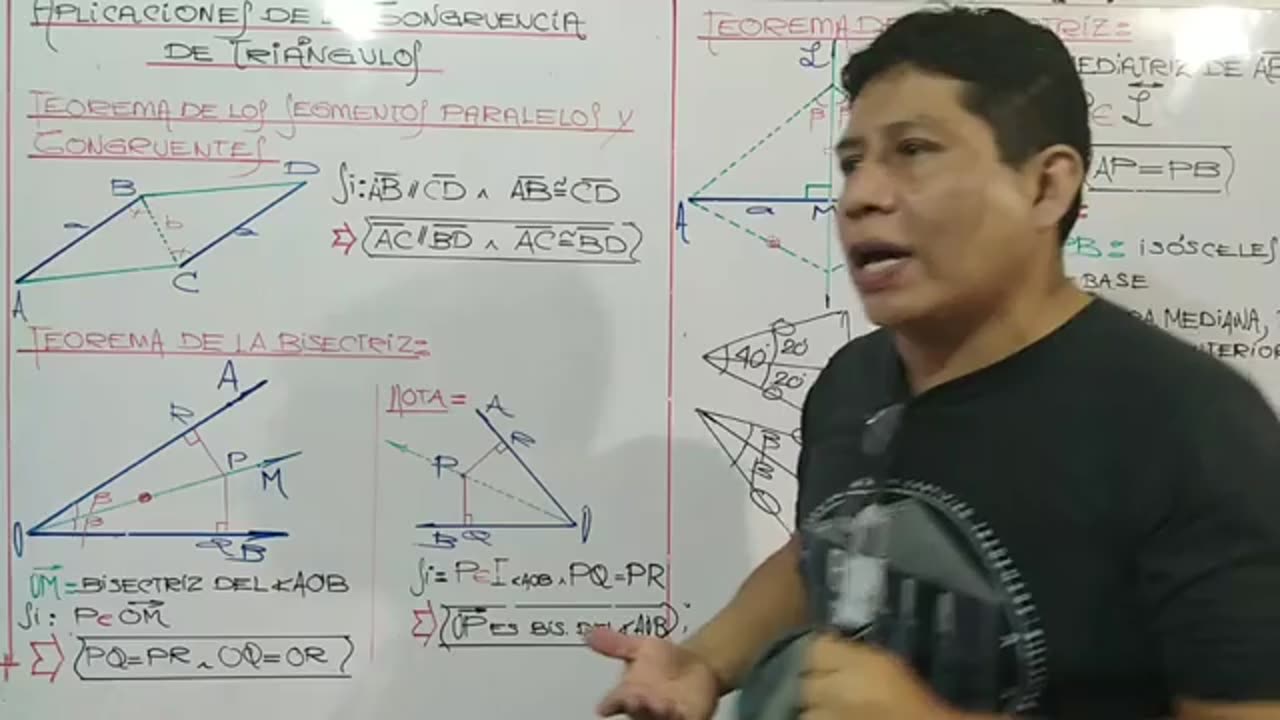 APLICACIONES DE CONGRUENCIA
DE TRIÁNGULOS
TEOREMA DE LOS SEGMENTOS PARALELOS Y
CONGRUENTES
B
D
a
b
a
A
C
Si: AB // CD ∧ AB ≅ CD
⇒ AC // BD ∧ AC ≅ BD
TEOREMA DE LA BISECTRIZ:
A
R
P
M
β
β
O
Q B
OM = BISECTRIZ DEL ∢AOB
Si: P ∈ OM
⇒ PQ = PR ∧ OQ = OR
NOTA =
A
R
P
B Q
O
Si = P ∈ I ∢AOB ∧ PQ = PR
⇒ OP ES BIS. DEL ∢AOB ;
TEOREMA DE
L
MEDIATRIZ DE
∈ L
AP = PB
A
a
M
PB = ISÓSCELES
BASE
MEDIANA,
40°
20°
20°
β
β